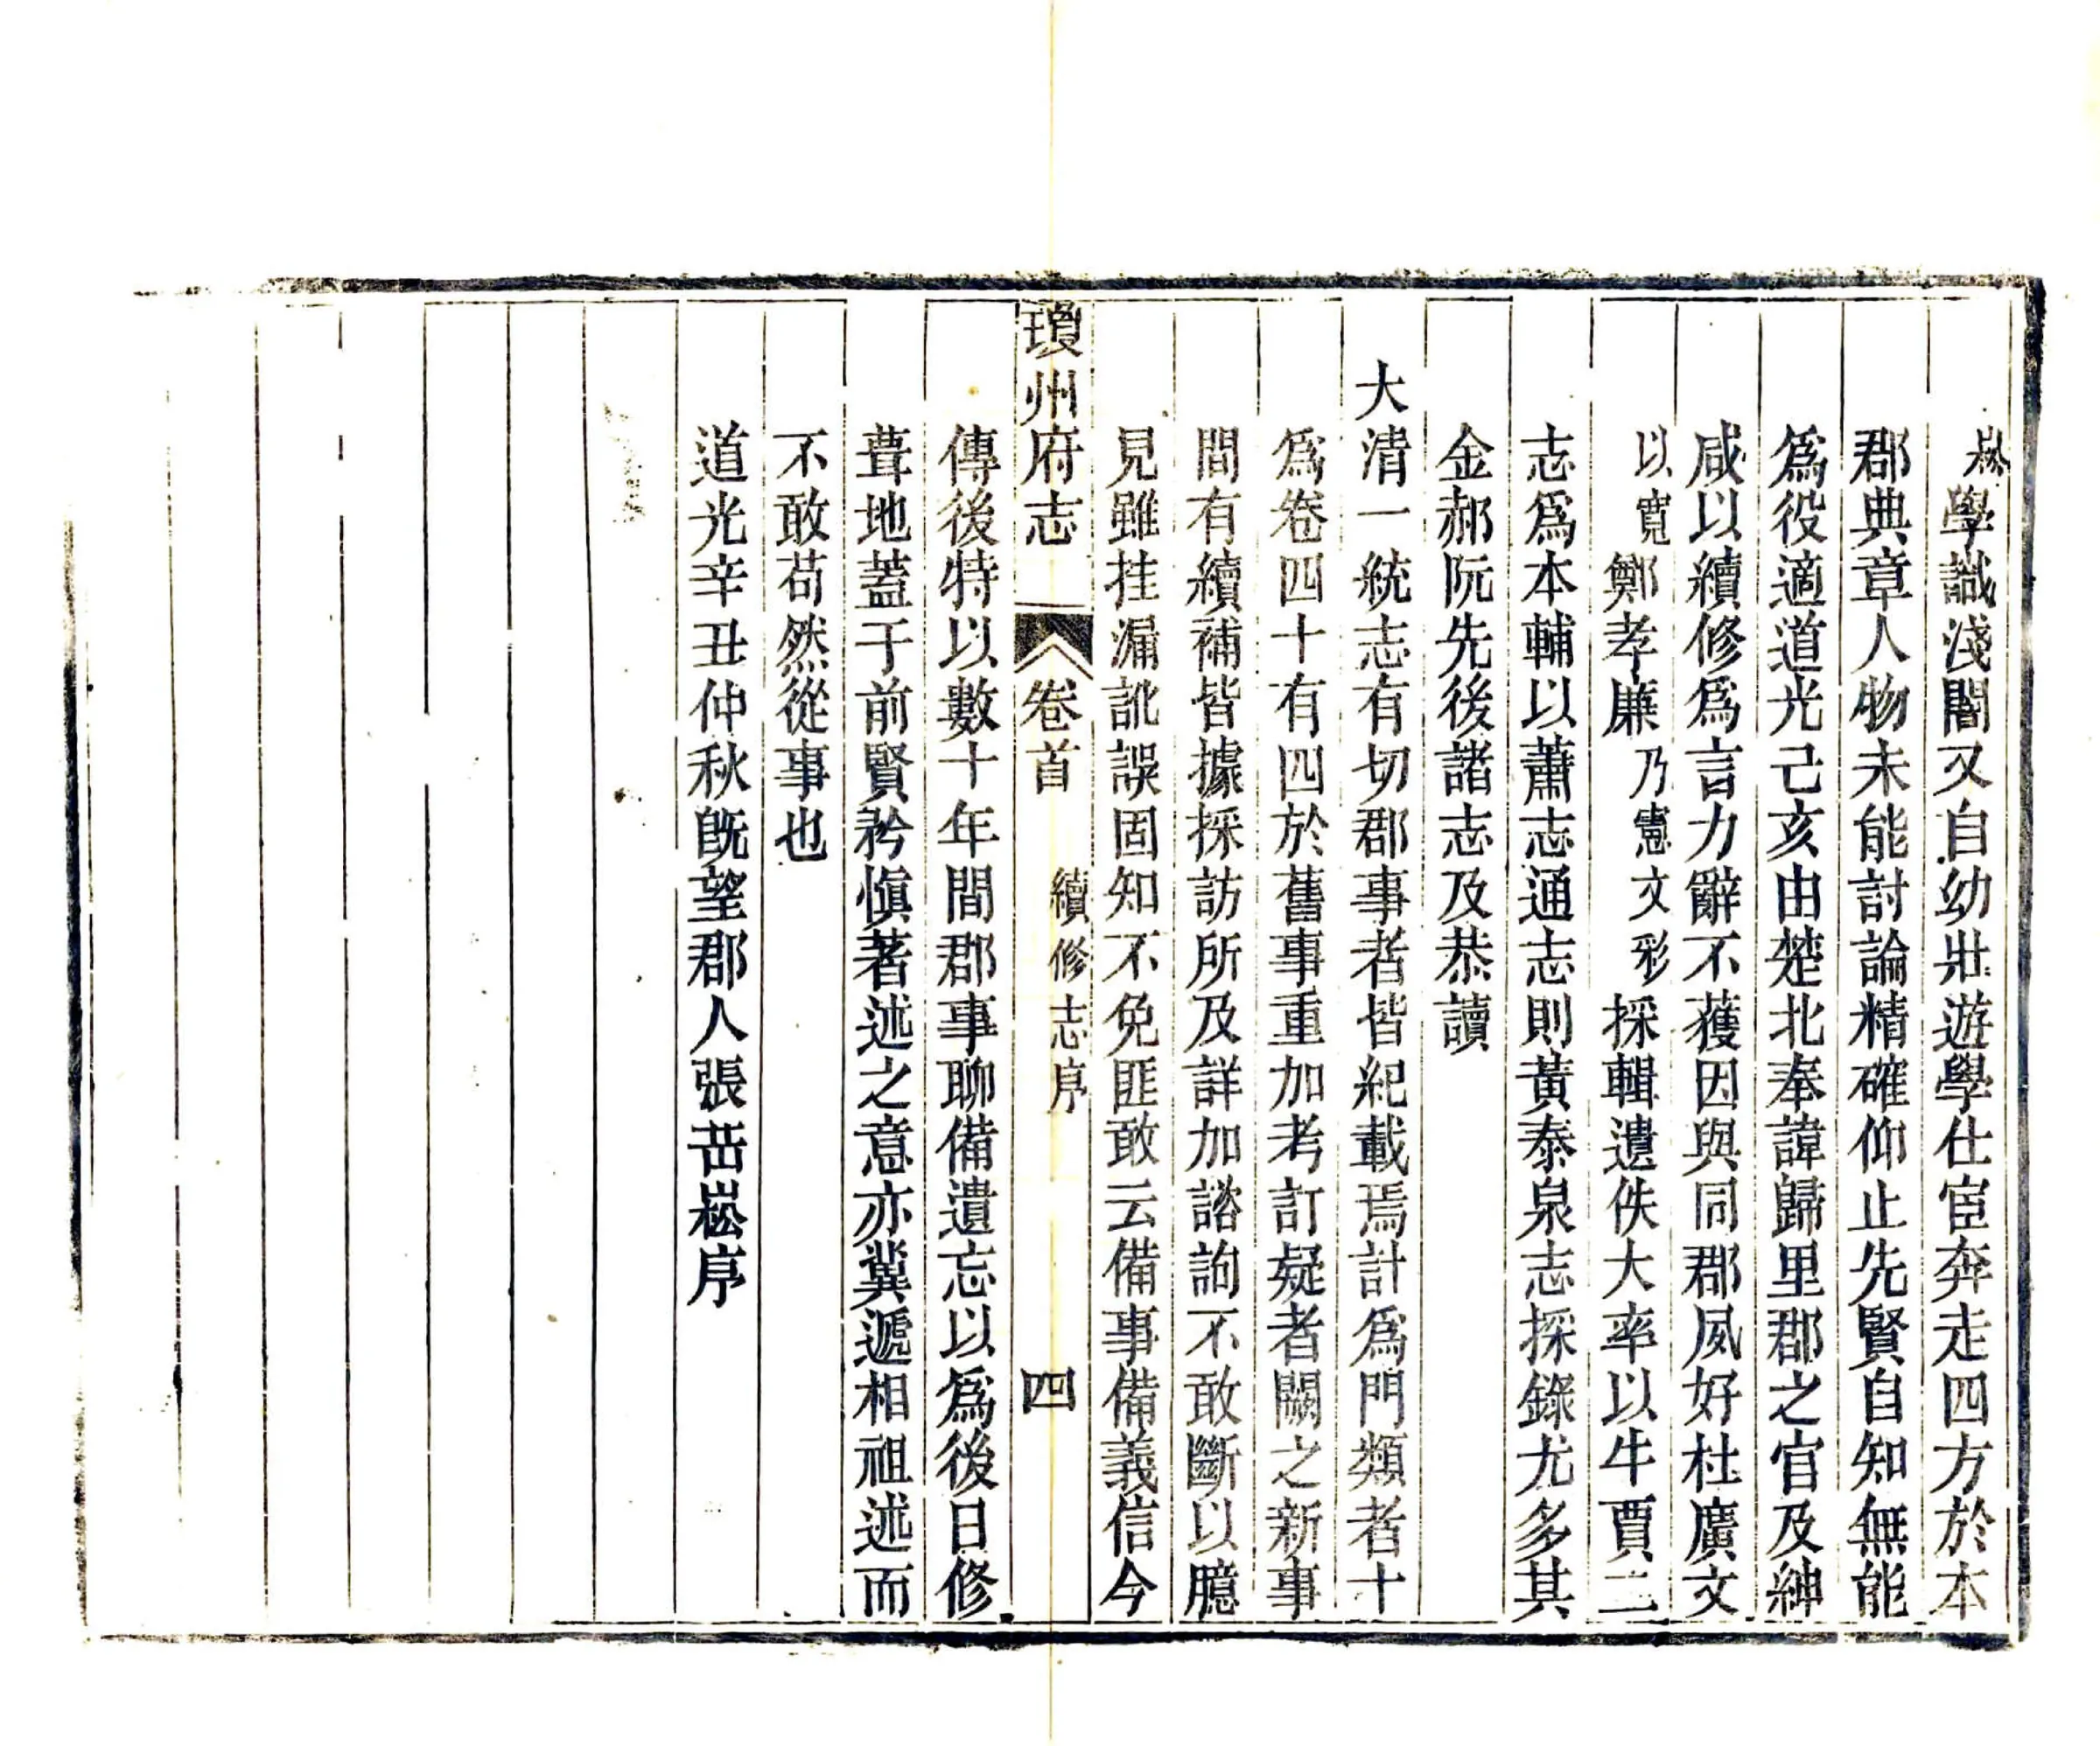 崧學識淺闇又自幼壯遊學仕宦奔走四方於本
郡典章人物未能討論精確仰止先賢自知無能
爲役適道光己亥由楚北奉諱歸里郡之官及紳
咸以續修爲言力辭不獲因與同郡夙好杜廣文
以寬鄭孝廉乃憲文彩採輯遺佚大率以牛賈二
志爲本輔以蕭志通志則黃泰泉志採錄尤多其
金郝阮先後諸志及恭讀
大清一統志有切郡事者皆紀載焉計爲門類者十
爲卷四十有四於舊事重加考訂疑者闕之新事
間有續補皆據採訪所及詳加諮詢不敢斷以臆
見雖挂漏訛誤固知不免匪敢云備事備義信今
瓊州府志 卷首 續修志序 四
傳後特以數十年間郡事聊備遺忘以爲後日修
葺地蓋于前賢矜愼著述之意亦冀遞相祖述而
不敢苟然從事也
道光辛丑仲秋旣望郡人張岳崧序